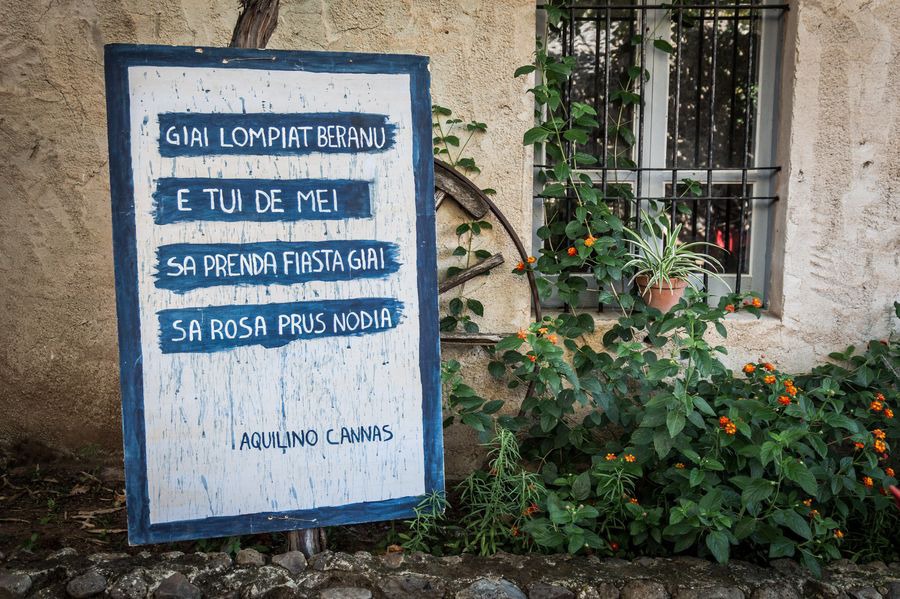 GIAI LOMPIAT BERANU
E TUI DE MEI
SA PRENDA FIASTA GIAI
SA ROSA PRUS NODIA
AQUILINO CANNAS